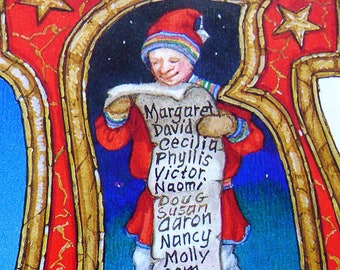 Margaret
David
Cecilia
Phyllis
Victor
Naomi
Doug
Susan
Aaron
Nancy
Molly